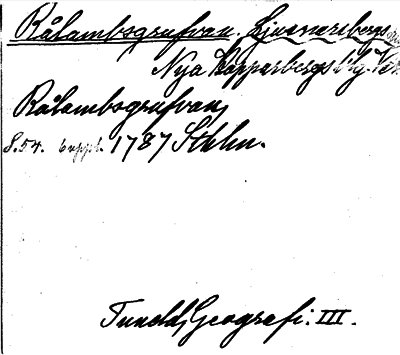 Rålambsgrufvan, Ljusnarsbergs
Nya Kopparbergs
Rålambsgrufvan,
S. 54. 6 uppl. 1787 Sthlm.
Tuneld, Geografi. III.